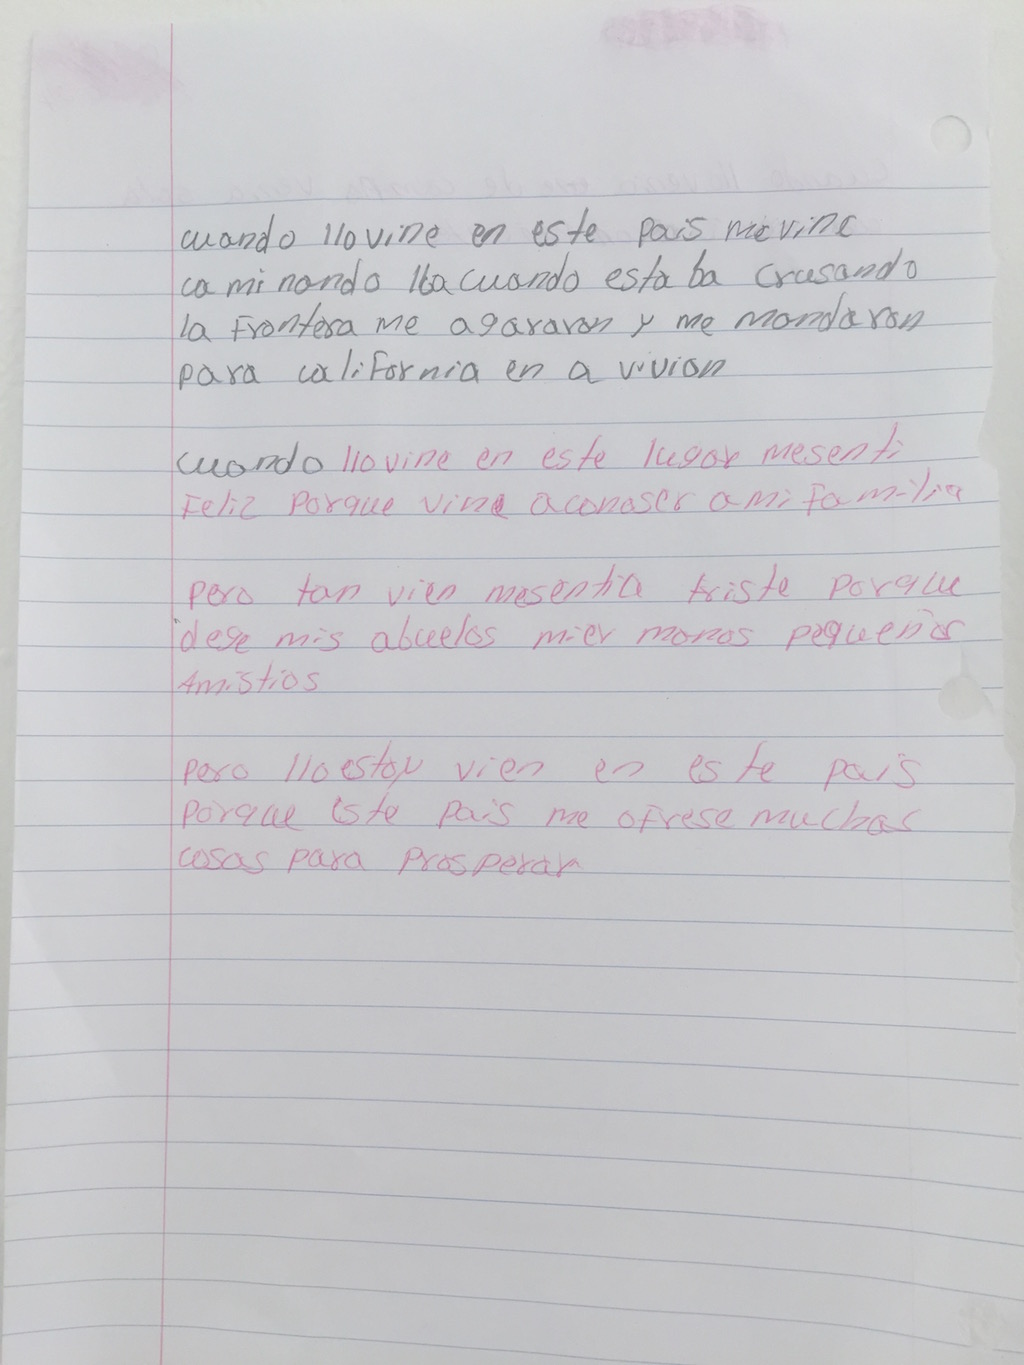 cuando llovine en este pais me vine
ca mi nando lla cuando esta ba crusando
la frontera me agararon y me mandaron
para california en a vivion
cuando llovine en este lugar mesenti
feliz porque vine aconoser a mi familia
pero tan vien mesentia triste porque
dege mis abuelos mi er manos pequeños
Amistios
pero lloestoy vien en este pais
porque este pais me ofrese muchas
cosas para prosperar